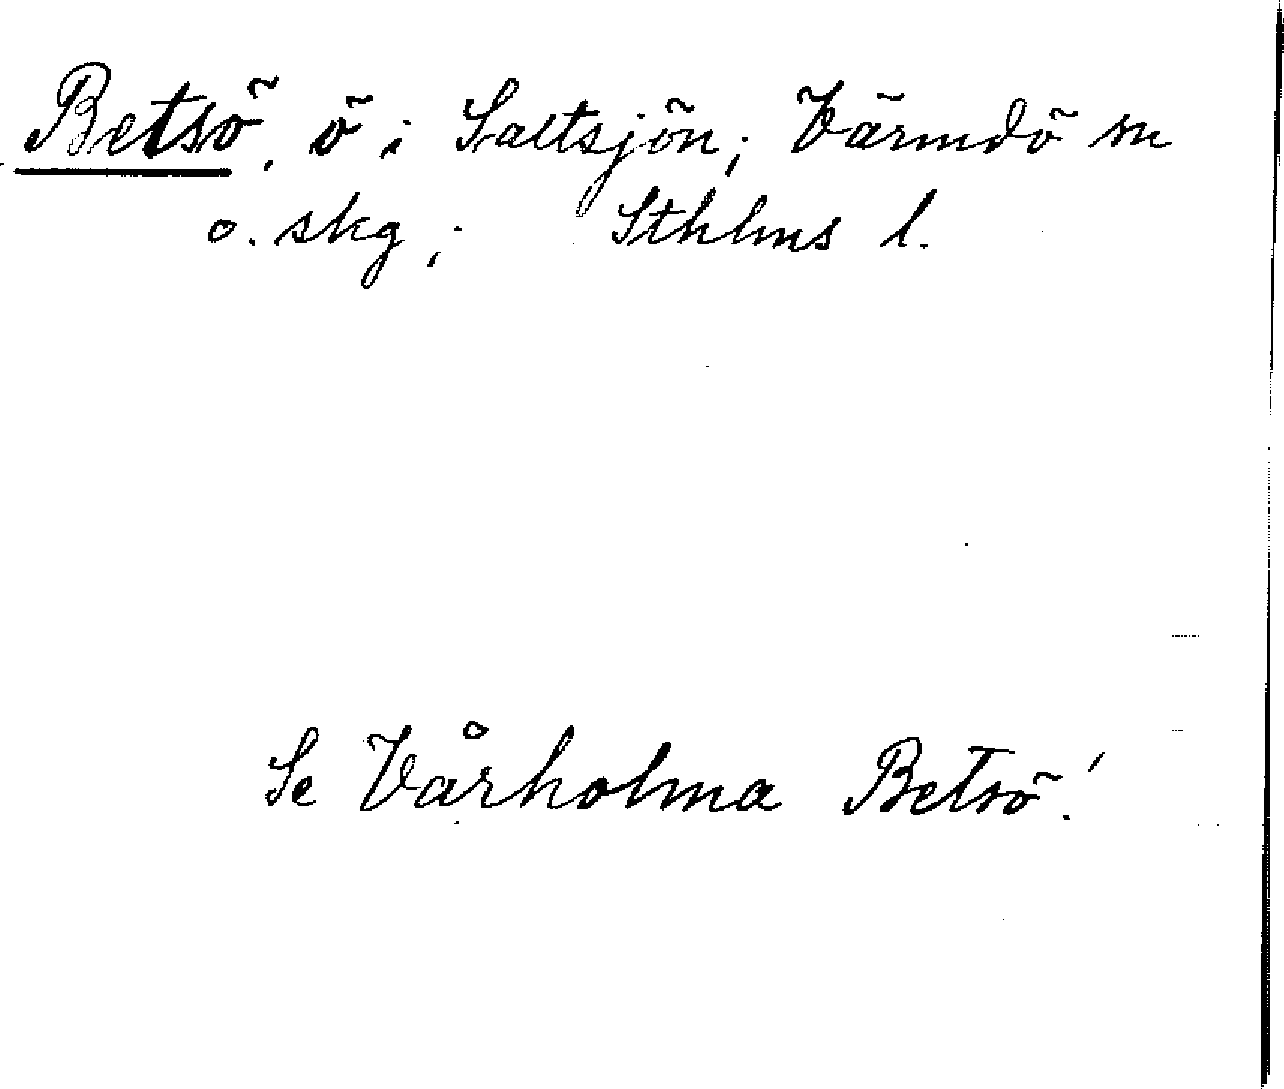 Betsö, ö i Saltsjön; Värmdö sn
o. skg; Sthlms l.
Se Vårholma Betsö!